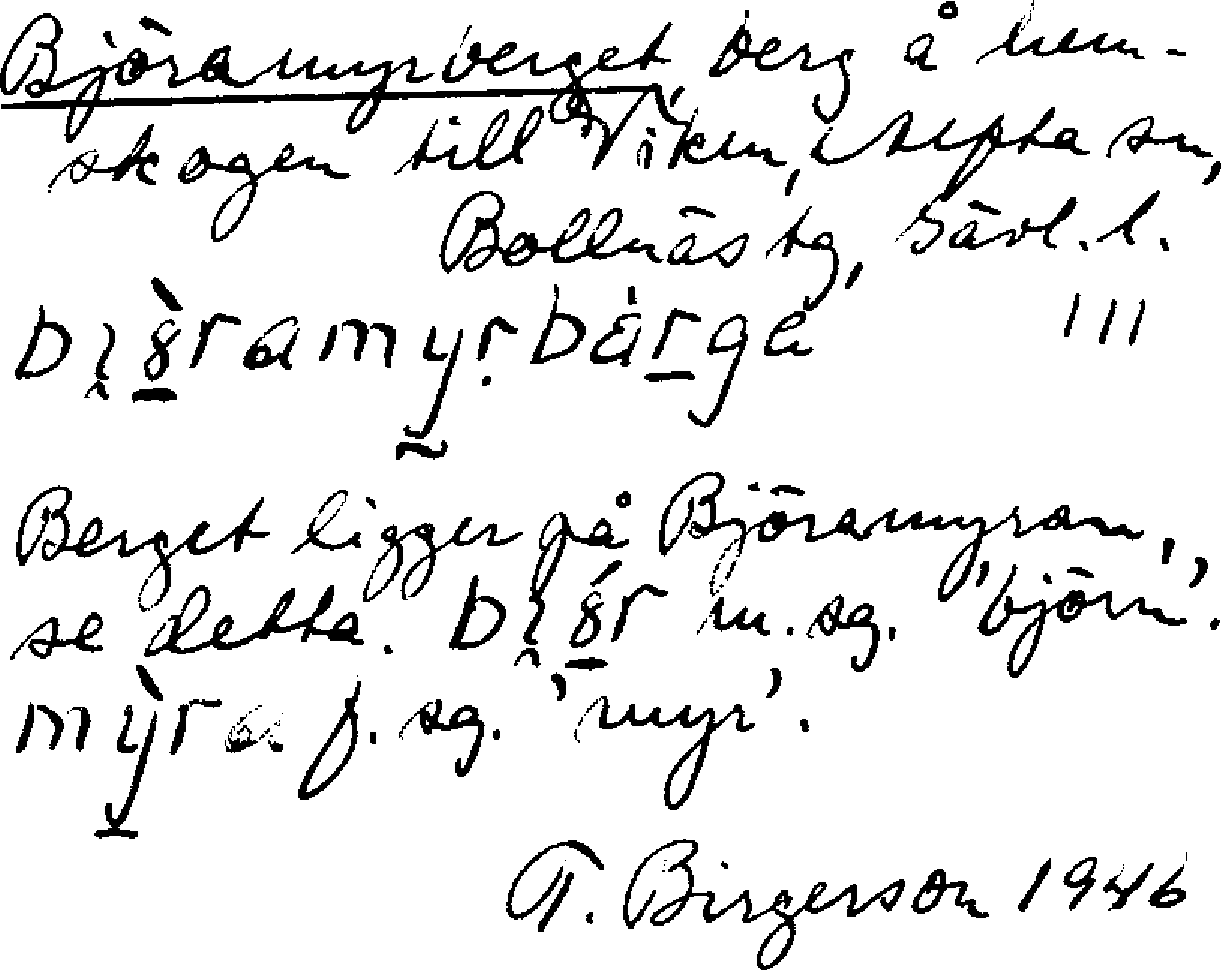 Björamyrberget, berg å hem-
skogen till Viken, Alfta sn,
Bollnäs tg, Gävl. l.
bi̯ɵ̀ramyrbärgä 111
Berget ligger på Björamyran,
se detta. bi̯ɵ́r m. sg. 'björn'.
mỳra f. sg. 'myr'.
T. Birgerson 1946